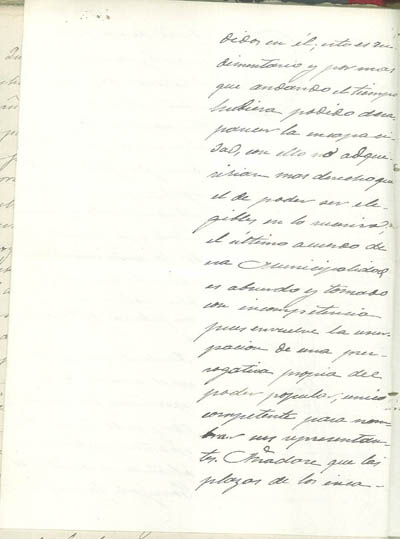 didos en él; esto es ru-
dimentario y por mas
que andando el tiempo
hubiera podido desa-
parecer la incapaci-
dad, con ello no adque-
ririan mas derecho que
el de poder ser ele-
gibles en lo
el último acuerdo de
esa Municipalidad
es absurdo y tomado
con incompetencia
pues envuelve la usur-
pacion de una pre-
rogativa propia del
poder popular, unico
competente para nom-
brar sus representan-
tes. Añadese que los
plazos de los inca-